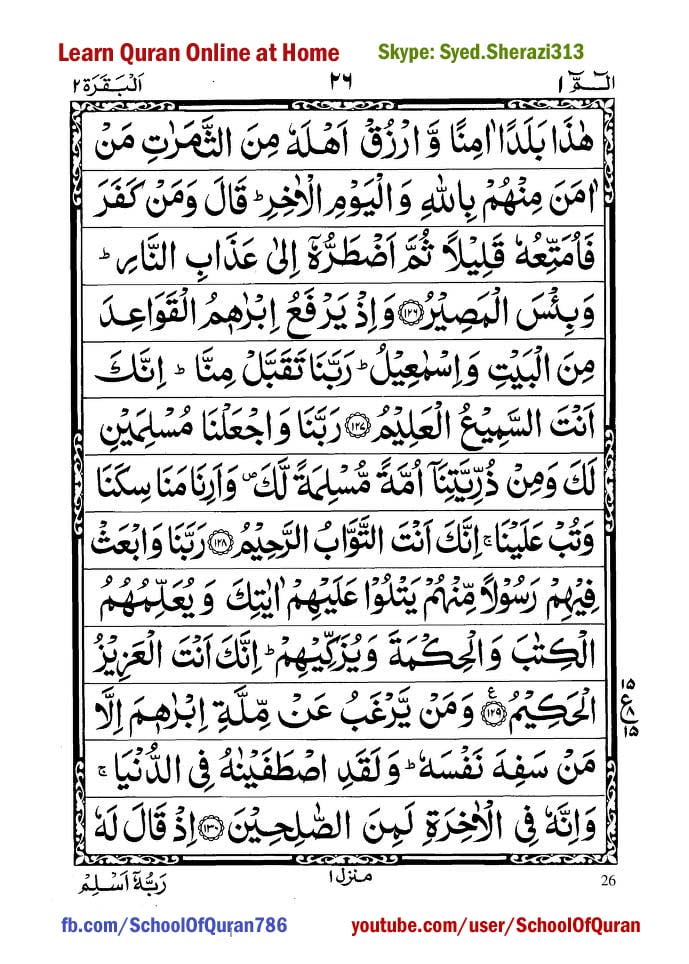 Learn Quran Online at Home Skype: Syed.Sherazi313
الٓمّٓ ١ ٢٦ اَلْبَقَرَة ٢
هٰذَا بَلَدًا اٰمِنًا وَّ ارْزُقْ اَهْلَهٗ مِنَ الثَّمَرٰتِ مَنْ
اٰمَنَ مِنْهُمْ بِاللّٰهِ وَ الْيَوْمِ الْاٰخِرِ ؕ قَالَ وَمَنْ كَفَرَ
فَاُمَتِّعُهٗ قَلِيْلًا ثُمَّ اَضْطَرُّهٗۤ اِلٰى عَذَابِ النَّارِ ؕ
وَ بِئْسَ الْمَصِيْرُ ﴿١٢٦﴾ وَ اِذْ يَرْفَعُ اِبْرٰهٖمُ الْقَوَاعِدَ
مِنَ الْبَيْتِ وَ اِسْمٰعِيْلُ ؕ رَبَّنَا تَقَبَّلْ مِنَّا ؕ اِنَّكَ
اَنْتَ السَّمِيْعُ الْعَلِيْمُ ﴿١٢٧﴾ رَبَّنَا وَ اجْعَلْنَا مُسْلِمَيْنِ
لَكَ وَ مِنْ ذُرِّيَّتِنَاۤ اُمَّةً مُّسْلِمَةً لَّكَ ۪ وَ اَرِنَا مَنَاسِكَنَا
وَ تُبْ عَلَيْنَا ۚ اِنَّكَ اَنْتَ التَّوَّابُ الرَّحِيْمُ ﴿١٢٨﴾ رَبَّنَا وَ ابْعَثْ
فِيْهِمْ رَسُوْلًا مِّنْهُمْ يَتْلُوْا عَلَيْهِمْ اٰيٰتِكَ وَ يُعَلِّمُهُمُ
الْكِتٰبَ وَ الْحِكْمَةَ وَ يُزَكِّيْهِمْ ؕ اِنَّكَ اَنْتَ الْعَزِيْزُ
الْحَكِيْمُ ﴿١٢٩﴾ ع وَ مَنْ يَّرْغَبُ عَنْ مِّلَّةِ اِبْرٰهٖمَ اِلَّا
١٥ ع ٨ ١٥
مَنْ سَفِهَ نَفْسَهٗ ؕ وَ لَقَدِ اصْطَفَيْنٰهُ فِى الدُّنْيَا ۚ
وَ اِنَّهٗ فِى الْاٰخِرَةِ لَمِنَ الصّٰلِحِيْنَ ﴿١٣٠﴾ اِذْ قَالَ لَهٗ
26 منزل ١ رَبُّهٗۤ اَسْلِمْ
fb.com/SchoolOfQuran786 youtube.com/user/SchoolOfQuran